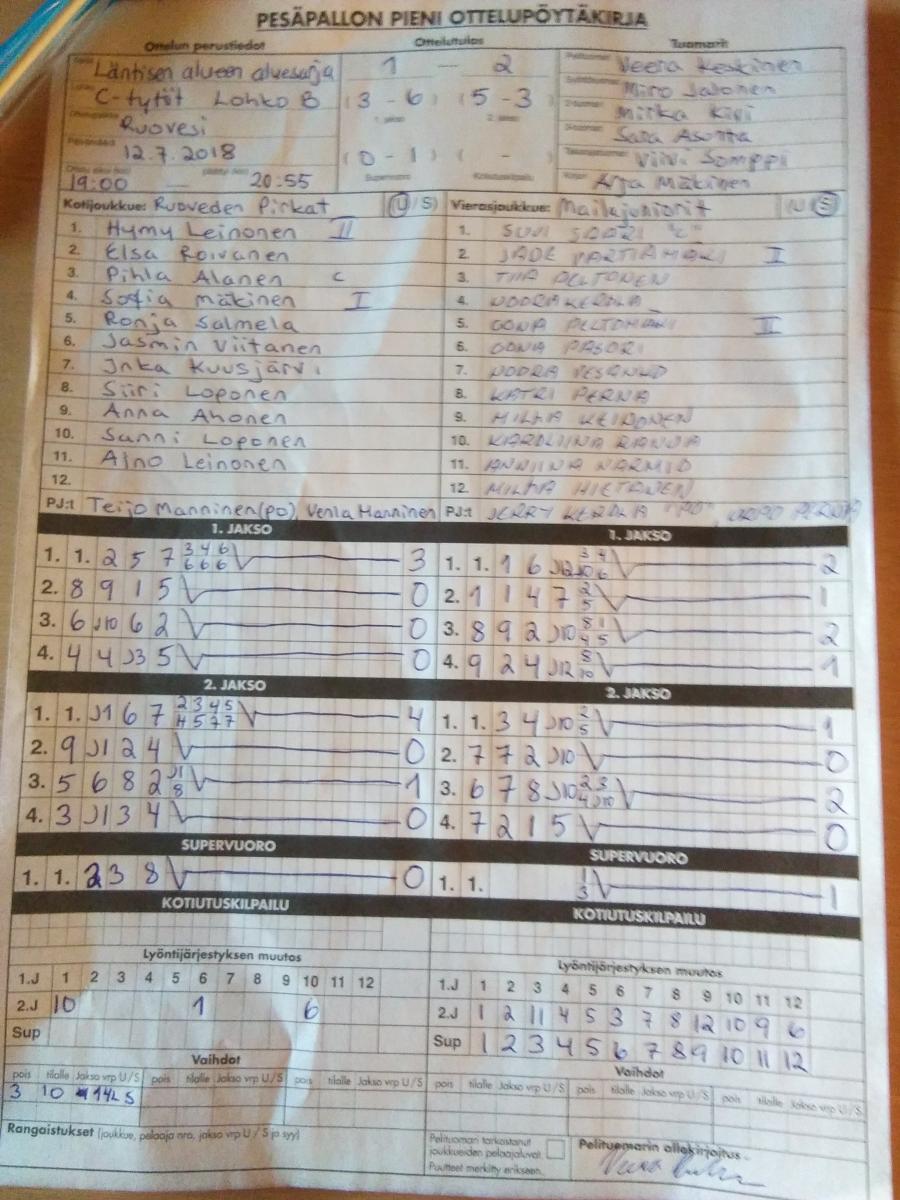 PESÄPALLON PIENI OTTELUPÖYTÄKIRJA
Ottelun perustiedot Ottelutulos Tuomarit
Läntisen alueen aluesarja 1 — 2 Veera Keskinen
C-tytöt Lohko B (3 - 6) (5 - 3) Miro Jalonen
1. jakso 2. jakso
Ruovesi Miika Kivi
12.7.2018 (0 - 1) ( - ) Sara Asonta
Supervuoro Kotiutuskilpailu Viivi Somppi
19:00 — 20:55 Arja Mäkinen
Kotijoukkue: Ruoveden Pirkat (U/S) Vierasjoukkue: Mailajuniorit
1. Hymy Leinonen II 1. SUVI SAARI "C"
2. Elsa Roivanen 2. JADE PARTIAMÄKI I
3. Pihla Alanen c 3. TIIA PELTONEN
4. Sofia Mäkinen I 4. NOORA KEROLA
5. Ronja Salmela 5. OONA PELTOMÄKI II
6. Jasmin Viitanen 6. OONA PASORI
7. Inka Kuusjärvi 7. NOORA
8. Siiri Loponen 8. KATRI PERNA
9. Anna Ahonen 9. MILKA
10. Sanni Loponen 10. KAROLIINA RANUA
11. Aino Leinonen 11. ANNIINA
12. 12. MILKA HIETANEN
PJ:t Teijo Manninen (po), Venla Manninen PJ:t JERRY KEROLA "PO", URPO PERNA
1. JAKSO 1. JAKSO
1. 1. 2 5 7 3 4 6 3 1. 1. 1 6 J12 3 4 2
6 6 6 10 6
2. 8 9 1 5 0 2. 1 1 4 7 2 1
5
3. 6 J10 6 2 0 3. 8 9 2 J10 8 1 2
4 5
4. 4 4 J3 5 0 4. 9 2 4 J12 8 1
10
2. JAKSO 2. JAKSO
1. 1. J1 6 7 2 3 4 5 4 1. 1. 3 4 J10 2 1
4 5 7 7 5
2. 9 J1 2 4 0 2. 7 7 2 J10 0
3. 5 6 8 2 J1 1 3. 6 7 8 J10 2 3 2
8 4 J10
4. 3 J1 3 4 0 4. 7 2 1 5 0
SUPERVUORO SUPERVUORO
1. 1. 2 3 8 0 1. 1. 1 1
3
KOTIUTUSKILPAILU KOTIUTUSKILPAILU
Lyöntijärjestyksen muutos Lyöntijärjestyksen muutos
1.J 1 2 3 4 5 6 7 8 9 10 11 12 1.J 1 2 3 4 5 6 7 8 9 10 11 12
2.J 10 1 6 2.J 1 2 11 4 5 3 7 8 12 10 9 6
Sup Sup 1 2 3 4 5 6 7 8 9 10 11 12
Vaihdot Vaihdot
pois tilalle Jakso vrp U/S pois tilalle Jakso vrp U/S pois tilalle Jakso vrp U/S pois tilalle Jakso vrp U/S pois tilalle Jakso vrp U/S pois tilalle Jakso vrp U/S
3 10 S
Rangaistukset (joukkue, pelaaja nro, jakso vrp U/S ja syy)
Pelituomari tarkastanut Pelituomarin allekirjoitus
joukkueiden pelaajaluvat
Puutteet merkitty erikseen.